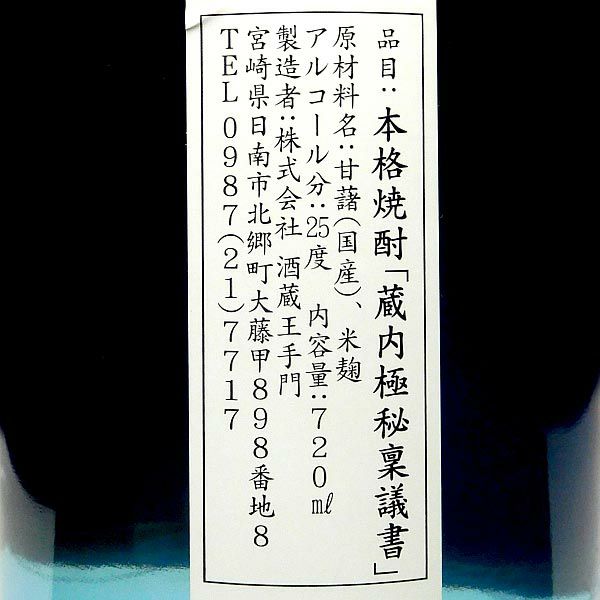 品目:本格焼酎「蔵内極秘稟議書」
原材料名:甘藷(国産)、米麹
アルコール分:25度 内容量:720㎖
製造者:株式会社 酒蔵王手門
宮崎県日南市北郷町大藤甲898番地8
TEL 0987(21)7717